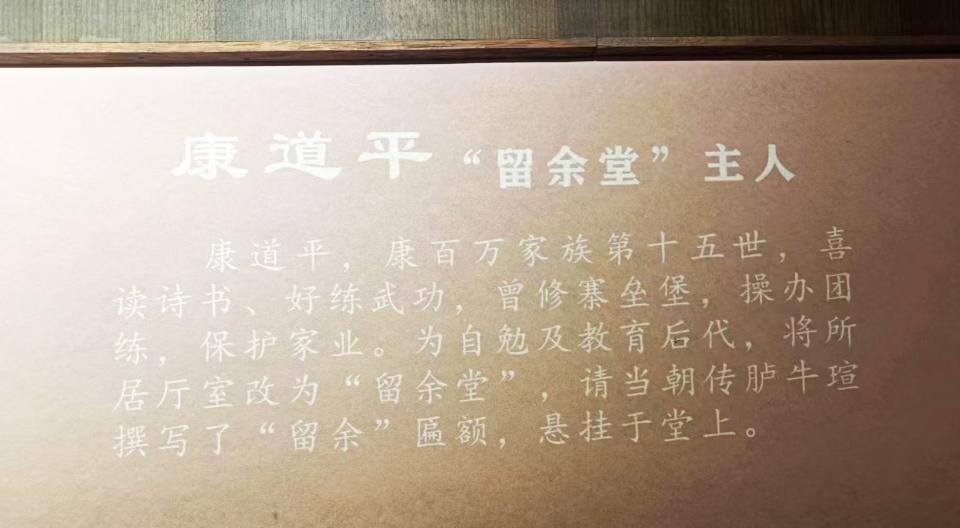 康道平“留余堂”主人
康道平，康百万家族第十五世，喜
读诗书、好练武功，曾修寨垒堡，操办团
练，保护家业。为自勉及教育后代，将所
居厅室改为“留余堂”，请当朝传胪牛瑄
撰写了“留余”匾额，悬挂于堂上。